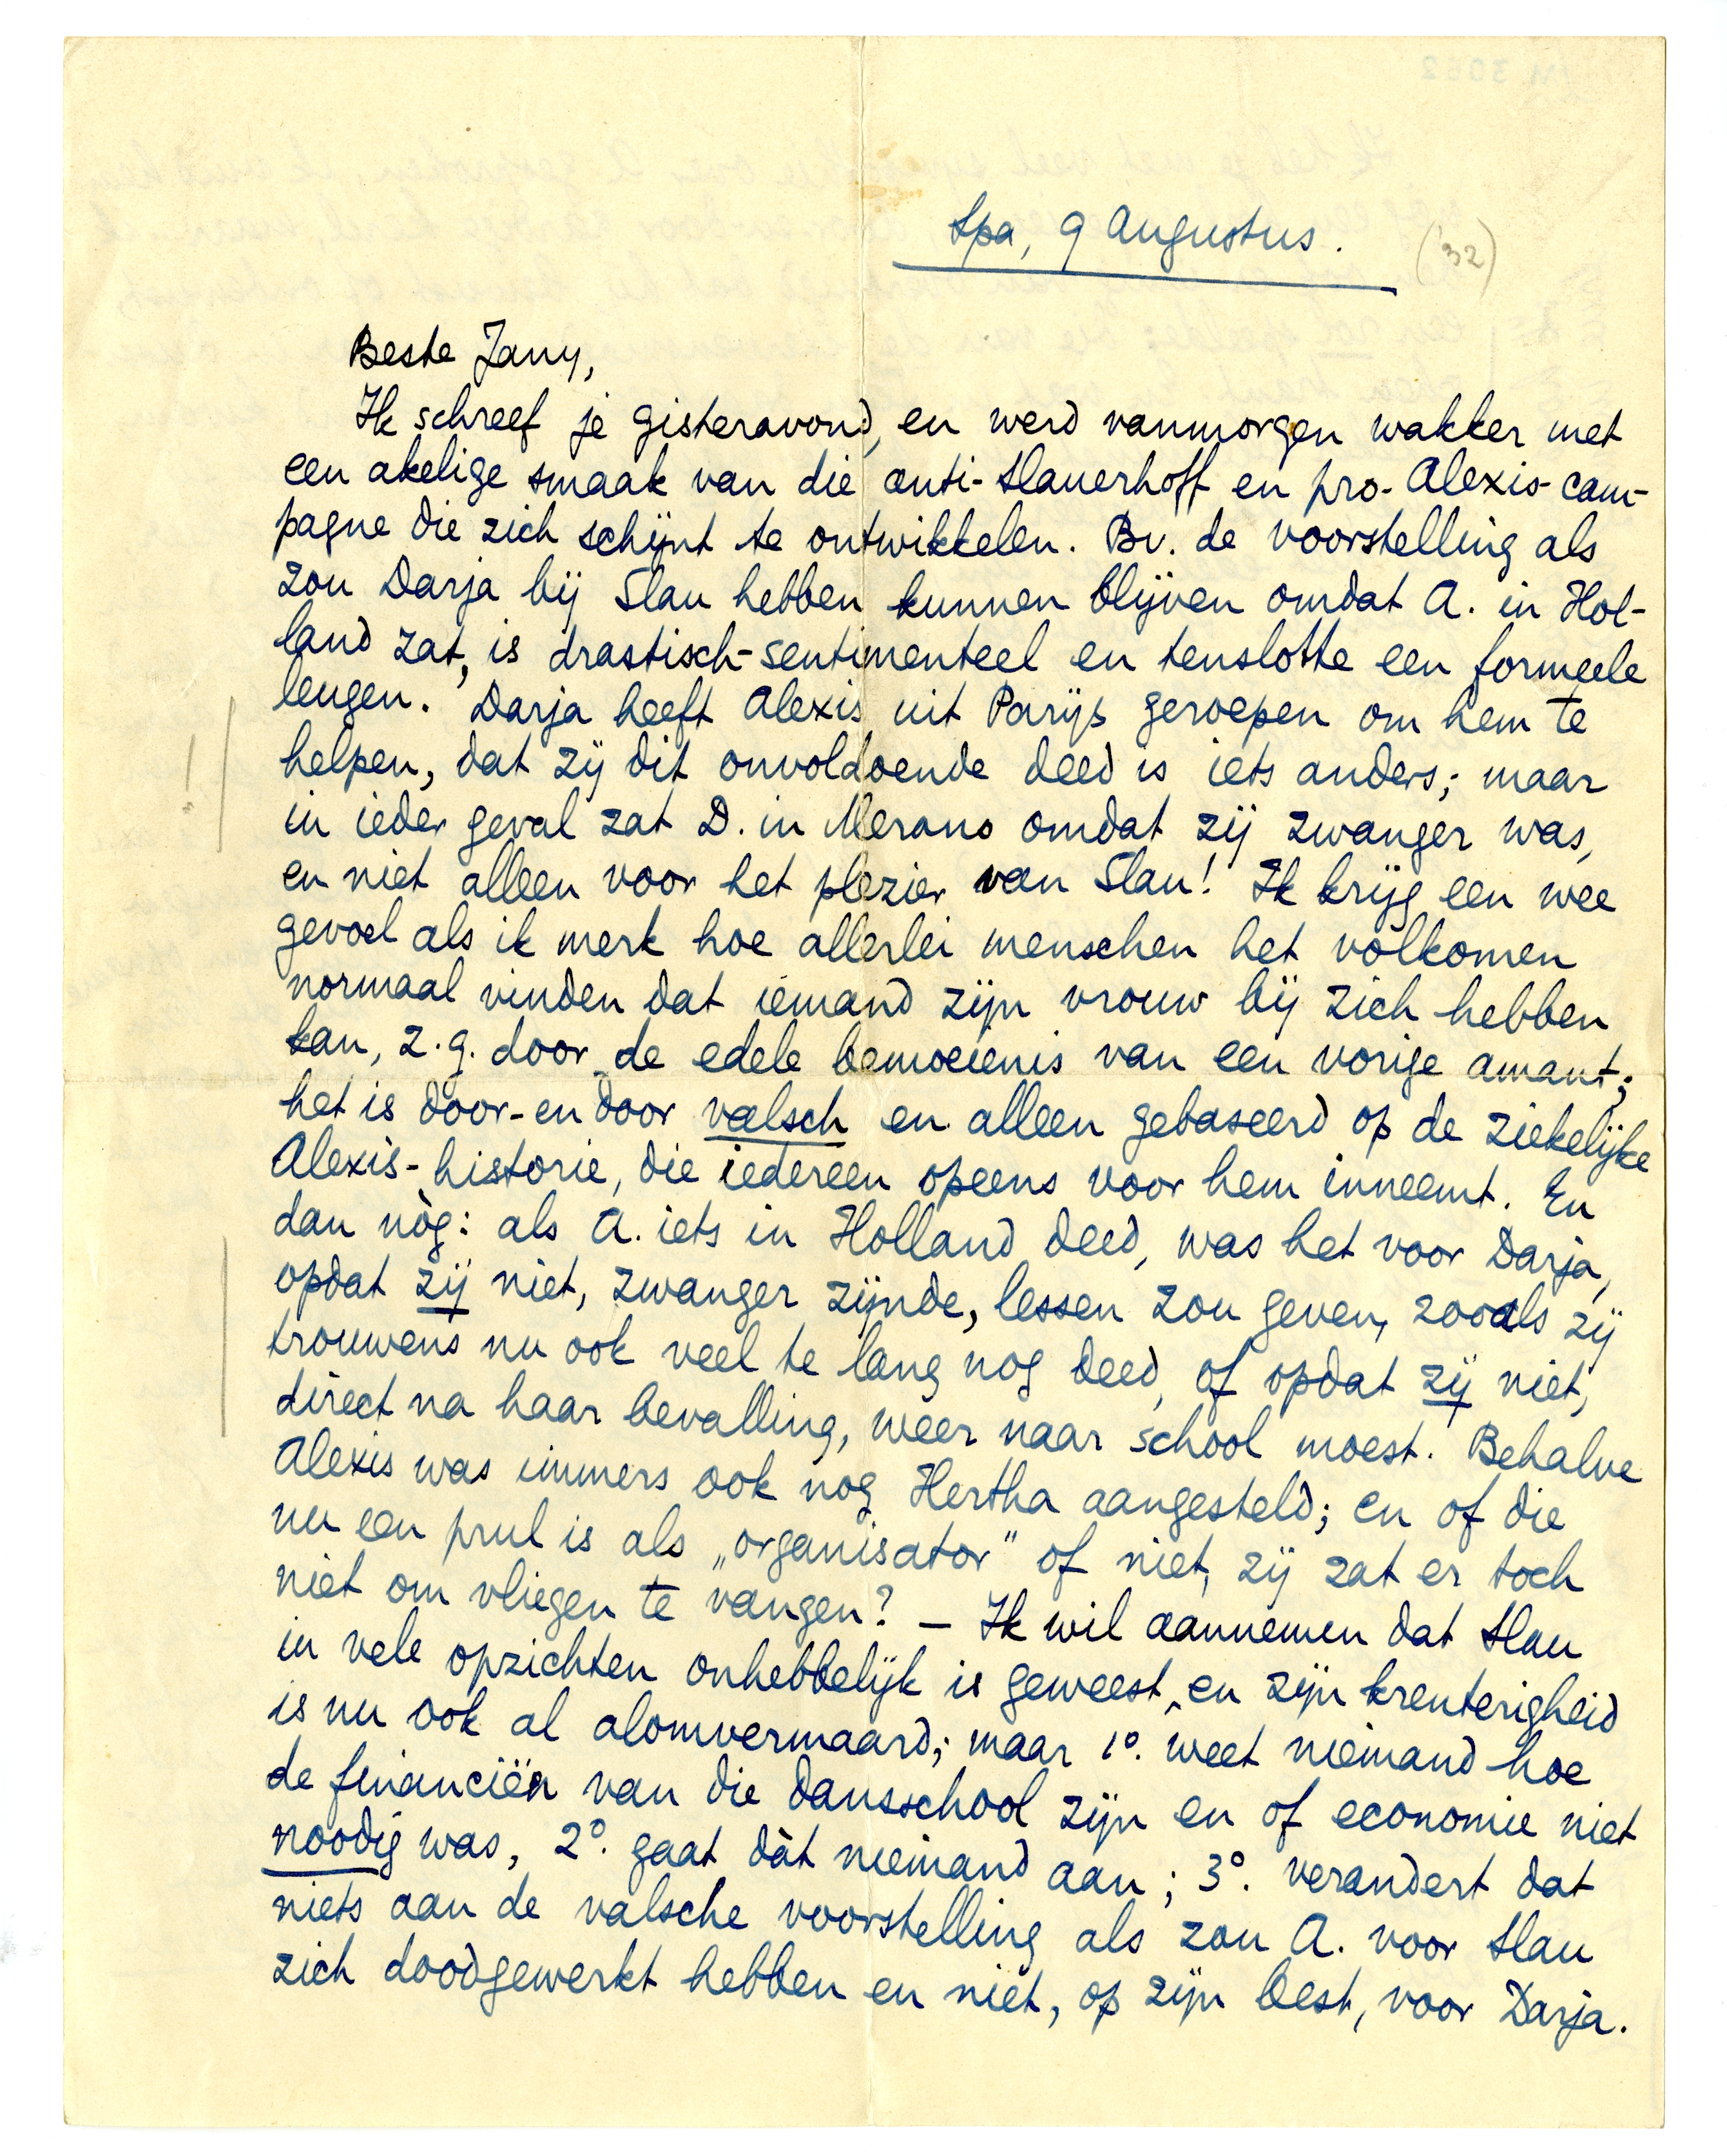 Spa, 9 Augustus. ('32)
Beste Jany,
Ik schreef je gisteravond, en werd vanmorgen wakker met
een akelige smaak van die anti-Slauerhoff en pro-Alexis-cam-
pagne die zich schijnt te ontwikkelen. Bv. de voorstelling als
zou Darja bij Slau hebben kunnen blijven omdat A. in Hol-
land zat, is drastisch-sentimenteel en tenslotte een formeele
leugen. Darja heeft Alexis uit Parijs geroepen om hem te
helpen, dat zij dit onvoldoende deed is iets anders; maar
!
in ieder geval zat D. in Merano omdat zij zwanger was,
en niet alleen voor het plezier van Slau! Ik krijg een wee
gevoel als ik merk hoe allerlei menschen het volkomen
normaal vinden dat iemand zijn vrouw bij zich hebben
kan, z.g. door de edele bemoeienis van een vorige amant;
het is door-en door valsch en alleen gebaseerd op de ziekelijke
Alexis-historie, die iedereen opeens voor hem inneemt. En
dan nòg: als A. iets in Holland deed, was het voor Darja,
opdat zij niet, zwanger zijnde, lessen zou geven, zooals zij
trouwens nu ook veel te lang nog deed, of opdat zij niet,
direct na haar bevalling, weer naar school moest. Behalve
Alexis was immers ook nog Hertha aangesteld; en of die
nu een prul is als „organisator" of niet, zij zat er toch
niet om vliegen te vangen? — Ik wil aannemen dat Slau
in vele opzichten onhebbelijk is geweest, en zijn krenterigheid
is nu ook al alomvermaard; maar 1°. weet niemand hoe
de financiën van die dansschool zijn en of economie niet
noodig was, 2°. gaat dàt niemand aan; 3°. verandert dat
niets aan de valsche voorstelling als zou A. voor Slau
zich doodgewerkt hebben en niet, op zijn best, voor Darja.